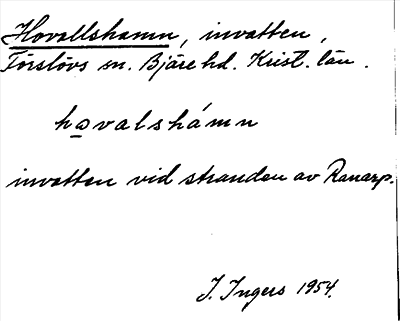 Hovallshamn, invatten,
Förslövs sn. Bjäre hd. Krist. län.
hovalshámn
invatten vid stranden av Ranarp.
I. Ingers 1954.